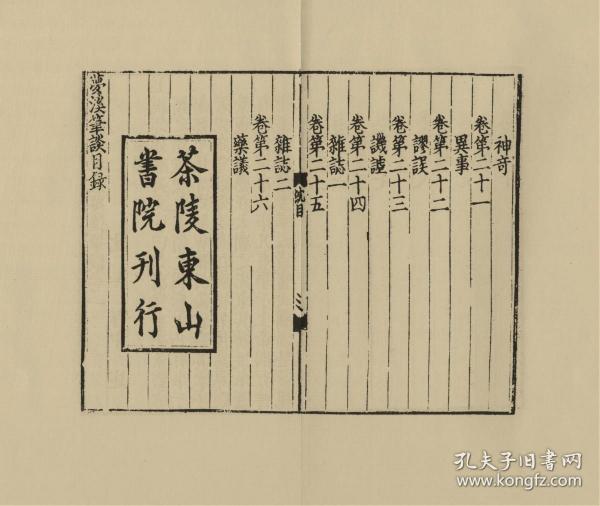 神奇
卷第二十一
異事
卷第二十二
謬誤
卷第二十三
譏謔
卷第二十四
雜誌一
卷第二十五
雜誌二
卷第二十六
藥議
茶陵東山
書院刊行
夢溪筆談目錄
孔夫子旧书网
www.kongfz.com